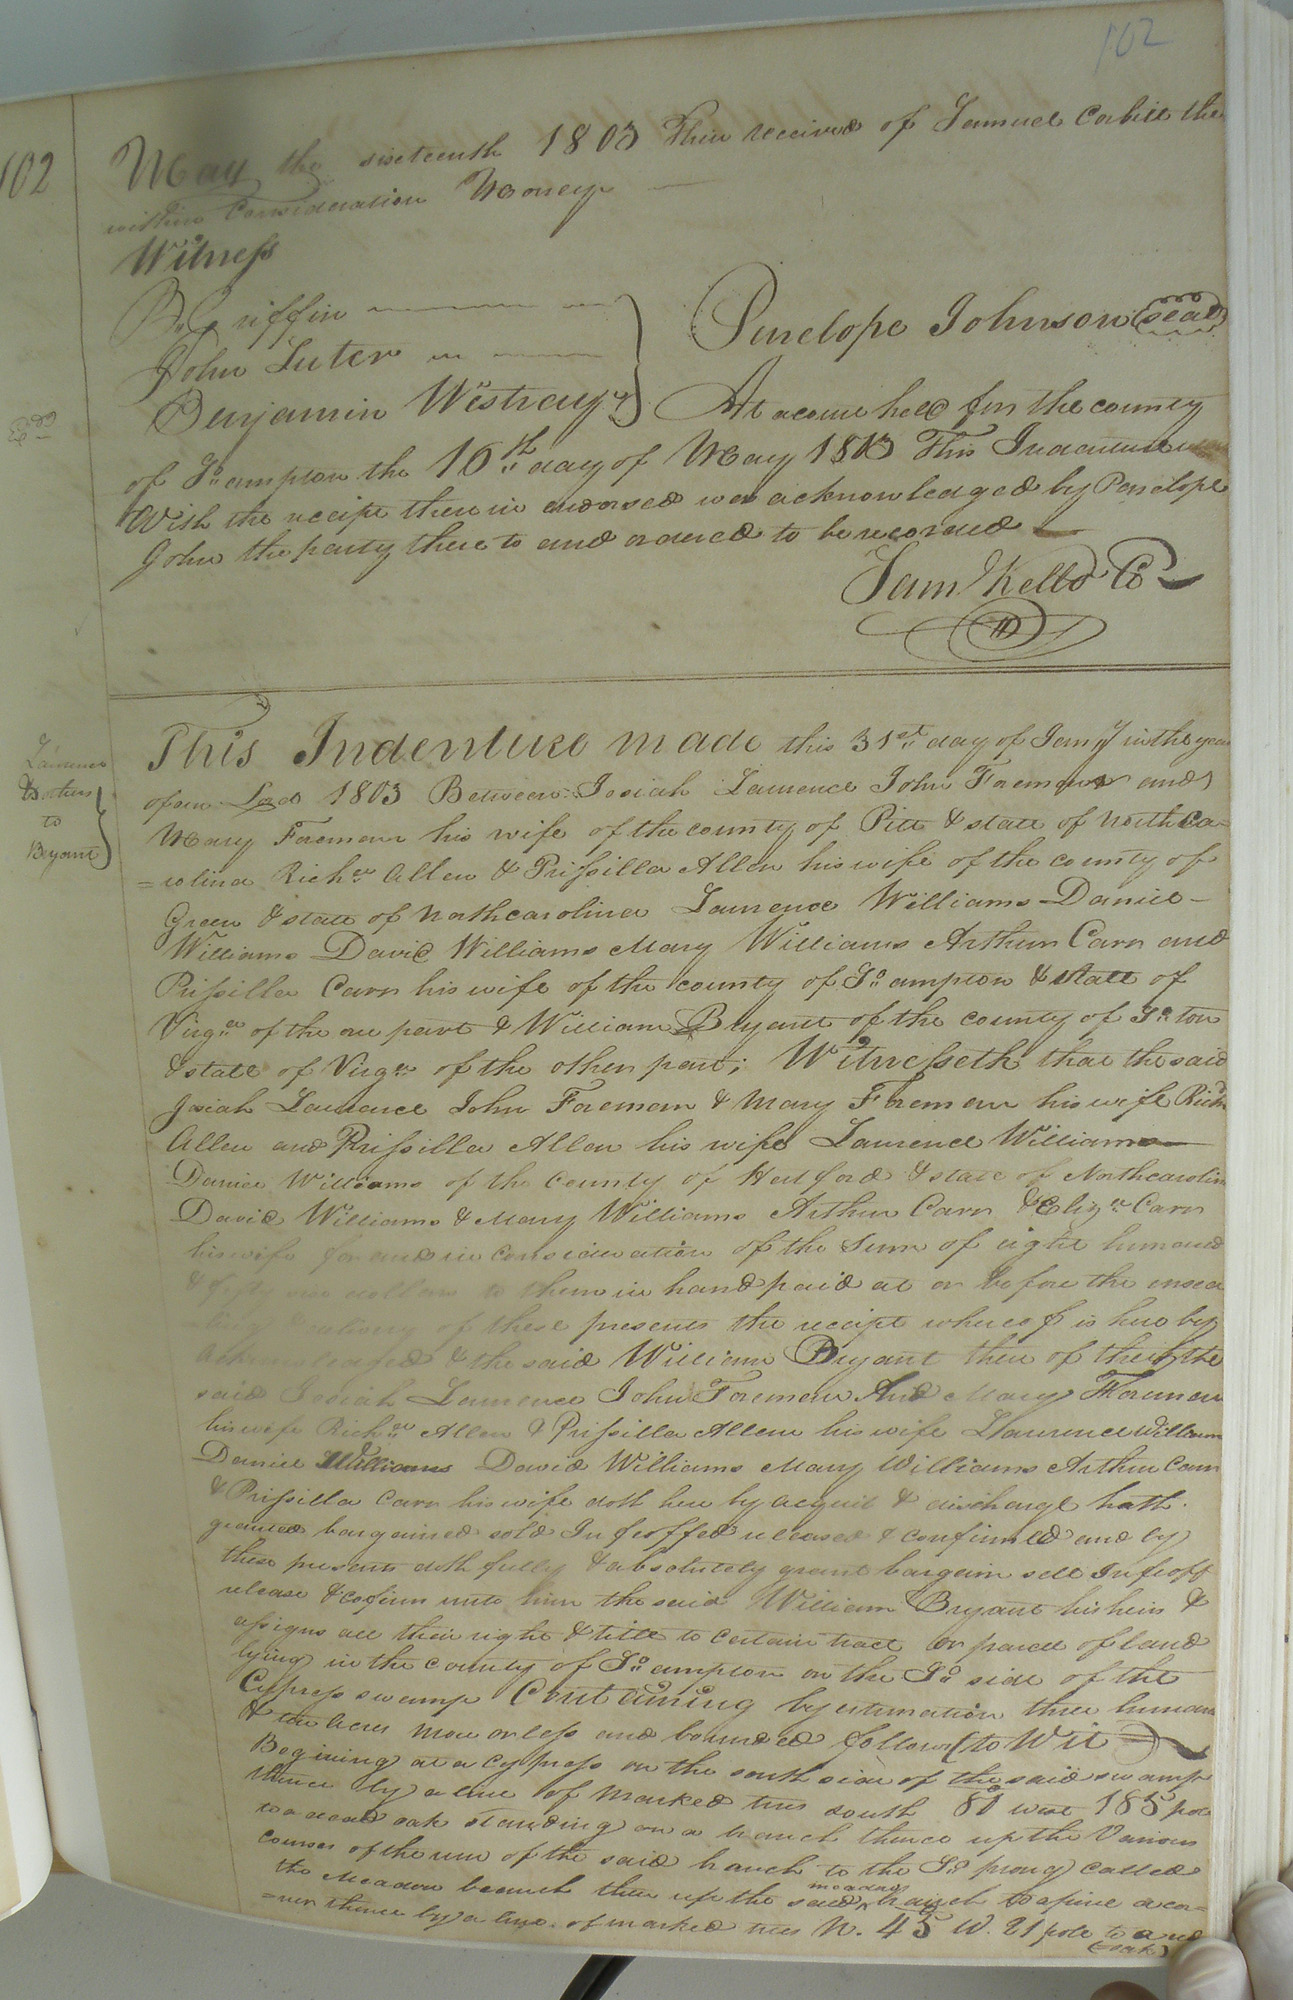 102
102
May the sixteenth 1803 Then received of Samuel Cobill the
within Consideration Money
Witness
B. Griffin
John Luter
Benjamin Westray
Penelope Johnson (seal)
At a court held for the county
of So.ampton the 16th day of May 1803 This Indenture
With the receipt there in endorsed was acknowledged by Penelope
John the party there to and ordered to be recorded
Sam Kello C
Laurence
& others
to
Bryant
This Indenture made this 31st day of Jany in the year
of our Lord 1803 Between Josiah Laurence John Foreman and
Mary Foreman his wife of the county of Pitt & state of North Ca-
=rolina Richd Allen & Prissilla Allen his wife of the county of
Green & state of North carolina Laurence Williams Daniel
Williams David Williams Mary Williams Arthur Carr and
Prissilla Carr his wife of the county of So ampton & state of
Virga of the one part & William Bryant of the county of So ton
& state of Virga of the other part; Witnesseth that the said
Josiah Laurence John Foreman & Mary Foreman his wife Richd
Allen and Prissilla Allen his wife Laurence Williams
Daniel Williams of the County of Hertford & state of North carolin
David Williams & Mary Williams Arthur Carr & Eliza Carr
his wife for and in consideration of the Sum of eight hundred
& fifty one dollars to them in hand paid at or before the ensea
ling & delivery of these presents the receipt whereof is here by
acknowledged & the said William Bryant there of the
said Josiah Laurence John Foreman And Mary Foreman
his wife Richd Allen & Prissilla Allen his wife Laurence William
Daniel Williams David Williams Mary Williams Arthur Carr
& Prissilla Carr his wife doth here by acquit & discharge hath
granted bargained sold Infeoffed released & confirmed and by
these presents doth fully & absolutely grant bargain sell Infeoff
release & confirm unto him the said William Bryant his heirs &
assigns all their right & title to certain tract or parcel of land
lying in the county of So ampton on the So side of the
Cypress swamp Containing by estimation three hundred
& ten Acres more or less and bounded follows (to Wit
Begining at a cypress on the south side of the said swamp
thence by a line of marked trees south 80 west 185 pole
to a dead oak standing on a branch thence up the Various
courses of the run of the said branch to the So prong called
the Meadow branch then up the said meadow branch to a pine a cor=
=ner thence by a line of marked trees N. 45 W. 21 pole to a red
(oak)